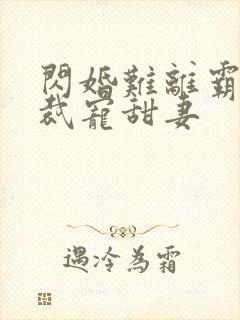 閃婚難離霸
裁寵甜妻
遇冷為霜